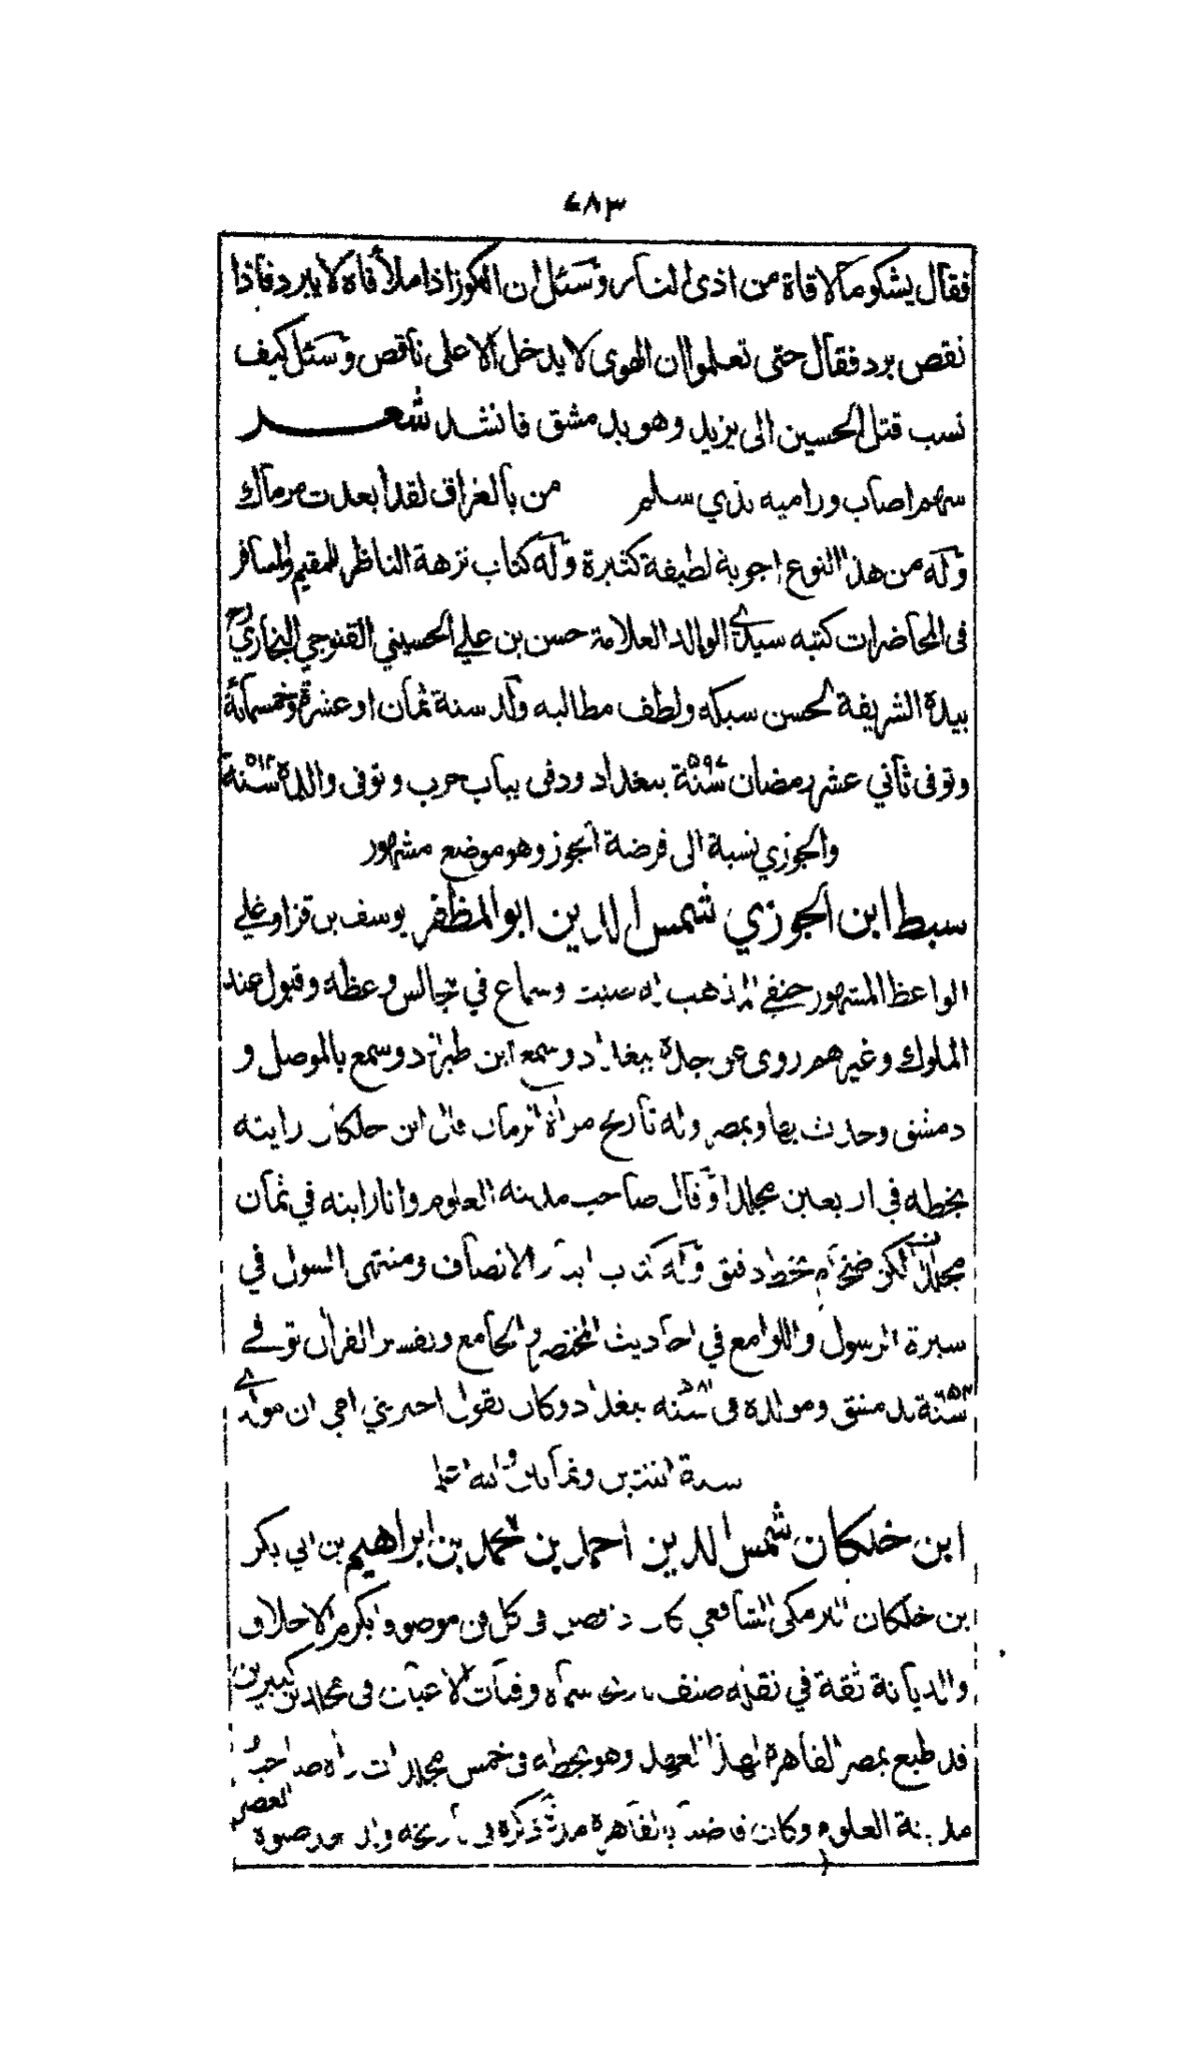 ٤٨٣
فقال يشكو ما لاقاه من اذى الناس وسئل ان الكوز اذا ملأناه لا يبرد فاذا
نقص برد فقال حتى تعلموا ان الهوى لا يدخل الا على ناقص وسئل كيف
نسب قتل الحسين الى يزيد وهو بدمشق فانشد شعر
سهم اصاب وراميه بذي سلم من بالعراق لقد ابعدت مرماك
وله من هذا النوع اجوبة لطيفة كثيرة وله كتاب نزهة الناظر للمقيم والمسافر
فى المحاضرات كتبه سيدي الوالد العلامة حسن بن علي الحسيني القنوجي البخاري رح
بيده الشريفة لحسن سبكه ولطف مطالبه ولد سنة ثمان او عشرة وخمسمائة
وتوفى ثاني عشر رمضان سنة ٥٩٧ ببغداد ودفى بباب حرب وتوفى والده سنة ٥١٤
والجوزي نسبة الى فرضة الجوز وهو موضع مشهور
سبط ابن الجوزي شمس الدين ابو المظفر يوسف بن قزاوغلي
الواعظ المشهور حنفي المذهب له صيت وسماع في مجالس وعظه وقبول عند
الملوك وغيرهم روى عن جده ببغداد وسمع ابن طبرزد وسمع بالموصل و
دمشق وحدث بها وبمصر وله تاريخ مرأة الزمان قال ابن خلكان رايته
بخطه في اربعين مجلدا وقال صاحب مدينة العلوم وانا رايته في ثمان
مجلدات لكن ضخام بخط دقيق وله كتاب ايثار الانصاف ومنتهى السول في
سيرة الرسول واللوامع في احاديث المختصر والجامع وتفسير القرأن توفي
سنة ٦٥٤ بدمشق ومولده فى سنة ٥٨١ ببغداد وكان يقول اخبرتني امي ان مولدي
سنة اثنتين وثمانين والله اعلم
ابن خلكان شمس الدين احمد بن محمد بن ابراهيم بن ابي بكر
بن خلكان البرمكي الشافعي كان ذا فضل فى كل فن موصوفا بكرم الاخلاق
والديانة ثقة في نقله صنف تاريخا سماه وفيات الاعيان فى مجلدين كبيرين
قد طبع بمصر القاهرة لهذا العهد وهو بخطه فى خمس مجلدات راه صاحب
مدينة العلوم وكان قاضيا بالقاهرة مدة ذكره فى تاريخه العصر